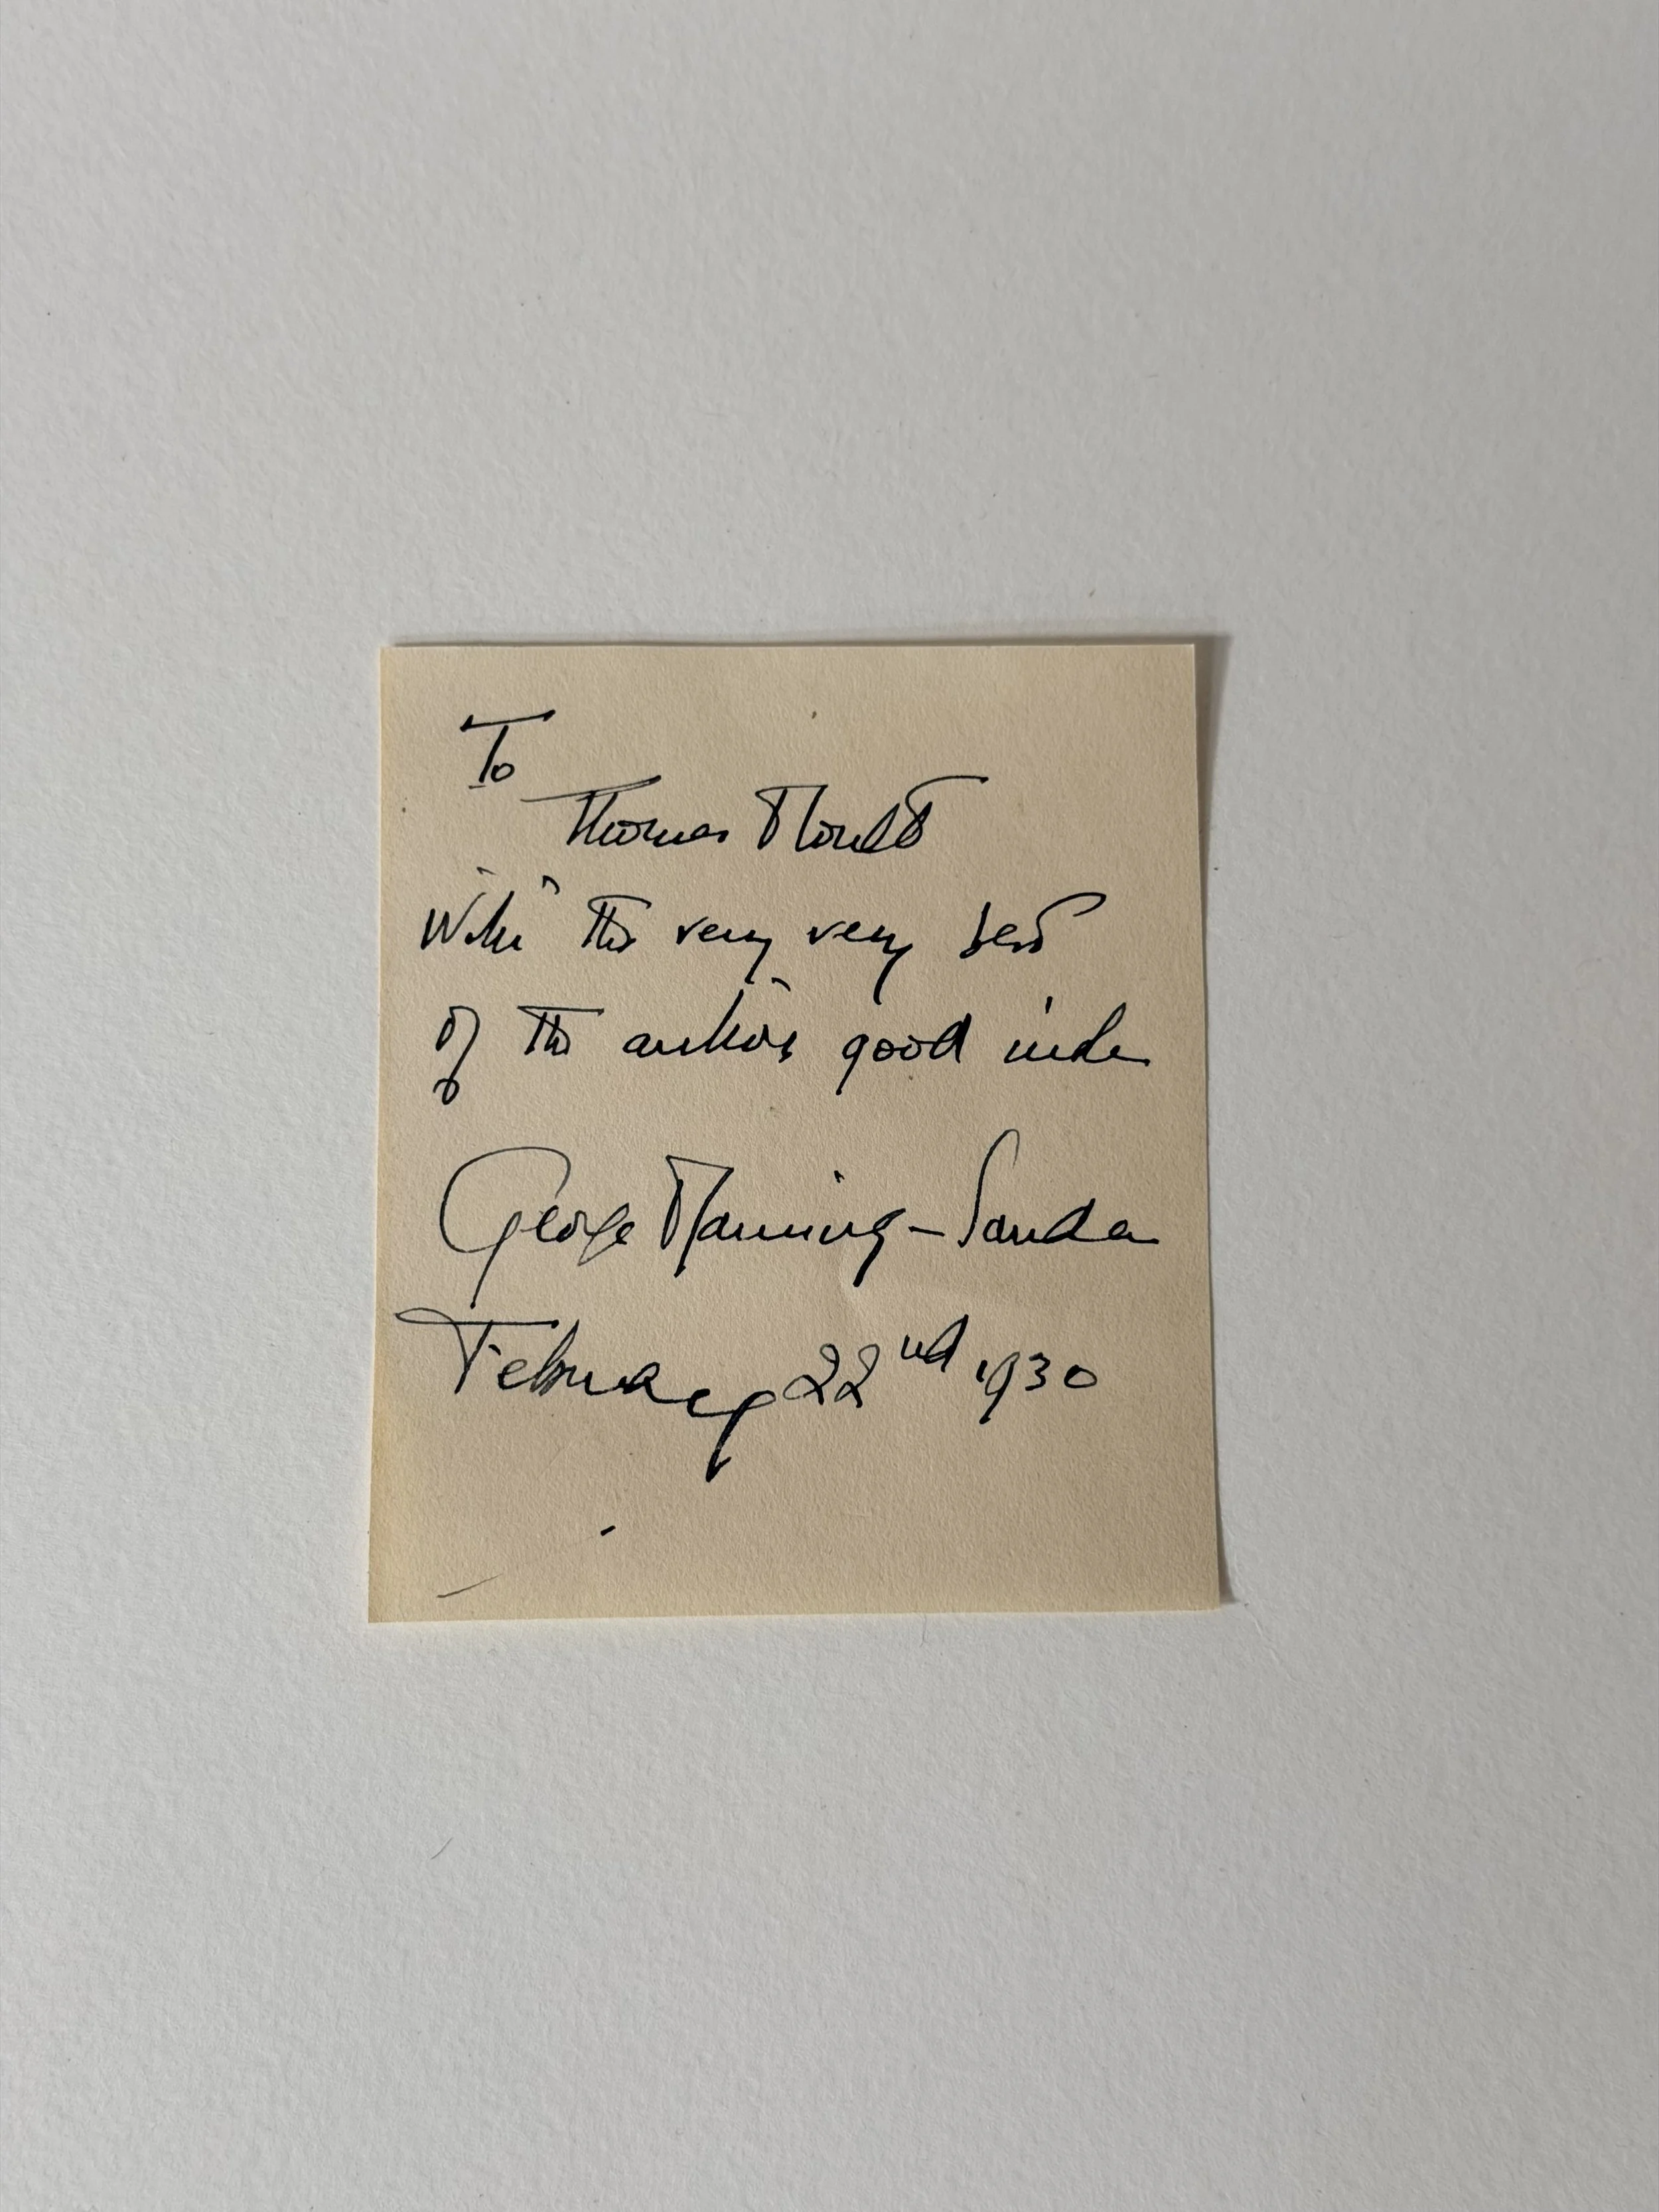 To
Thomas Moult
With the very very best
of the author's good wishes
George Manning-Sanders
February 22nd 1930